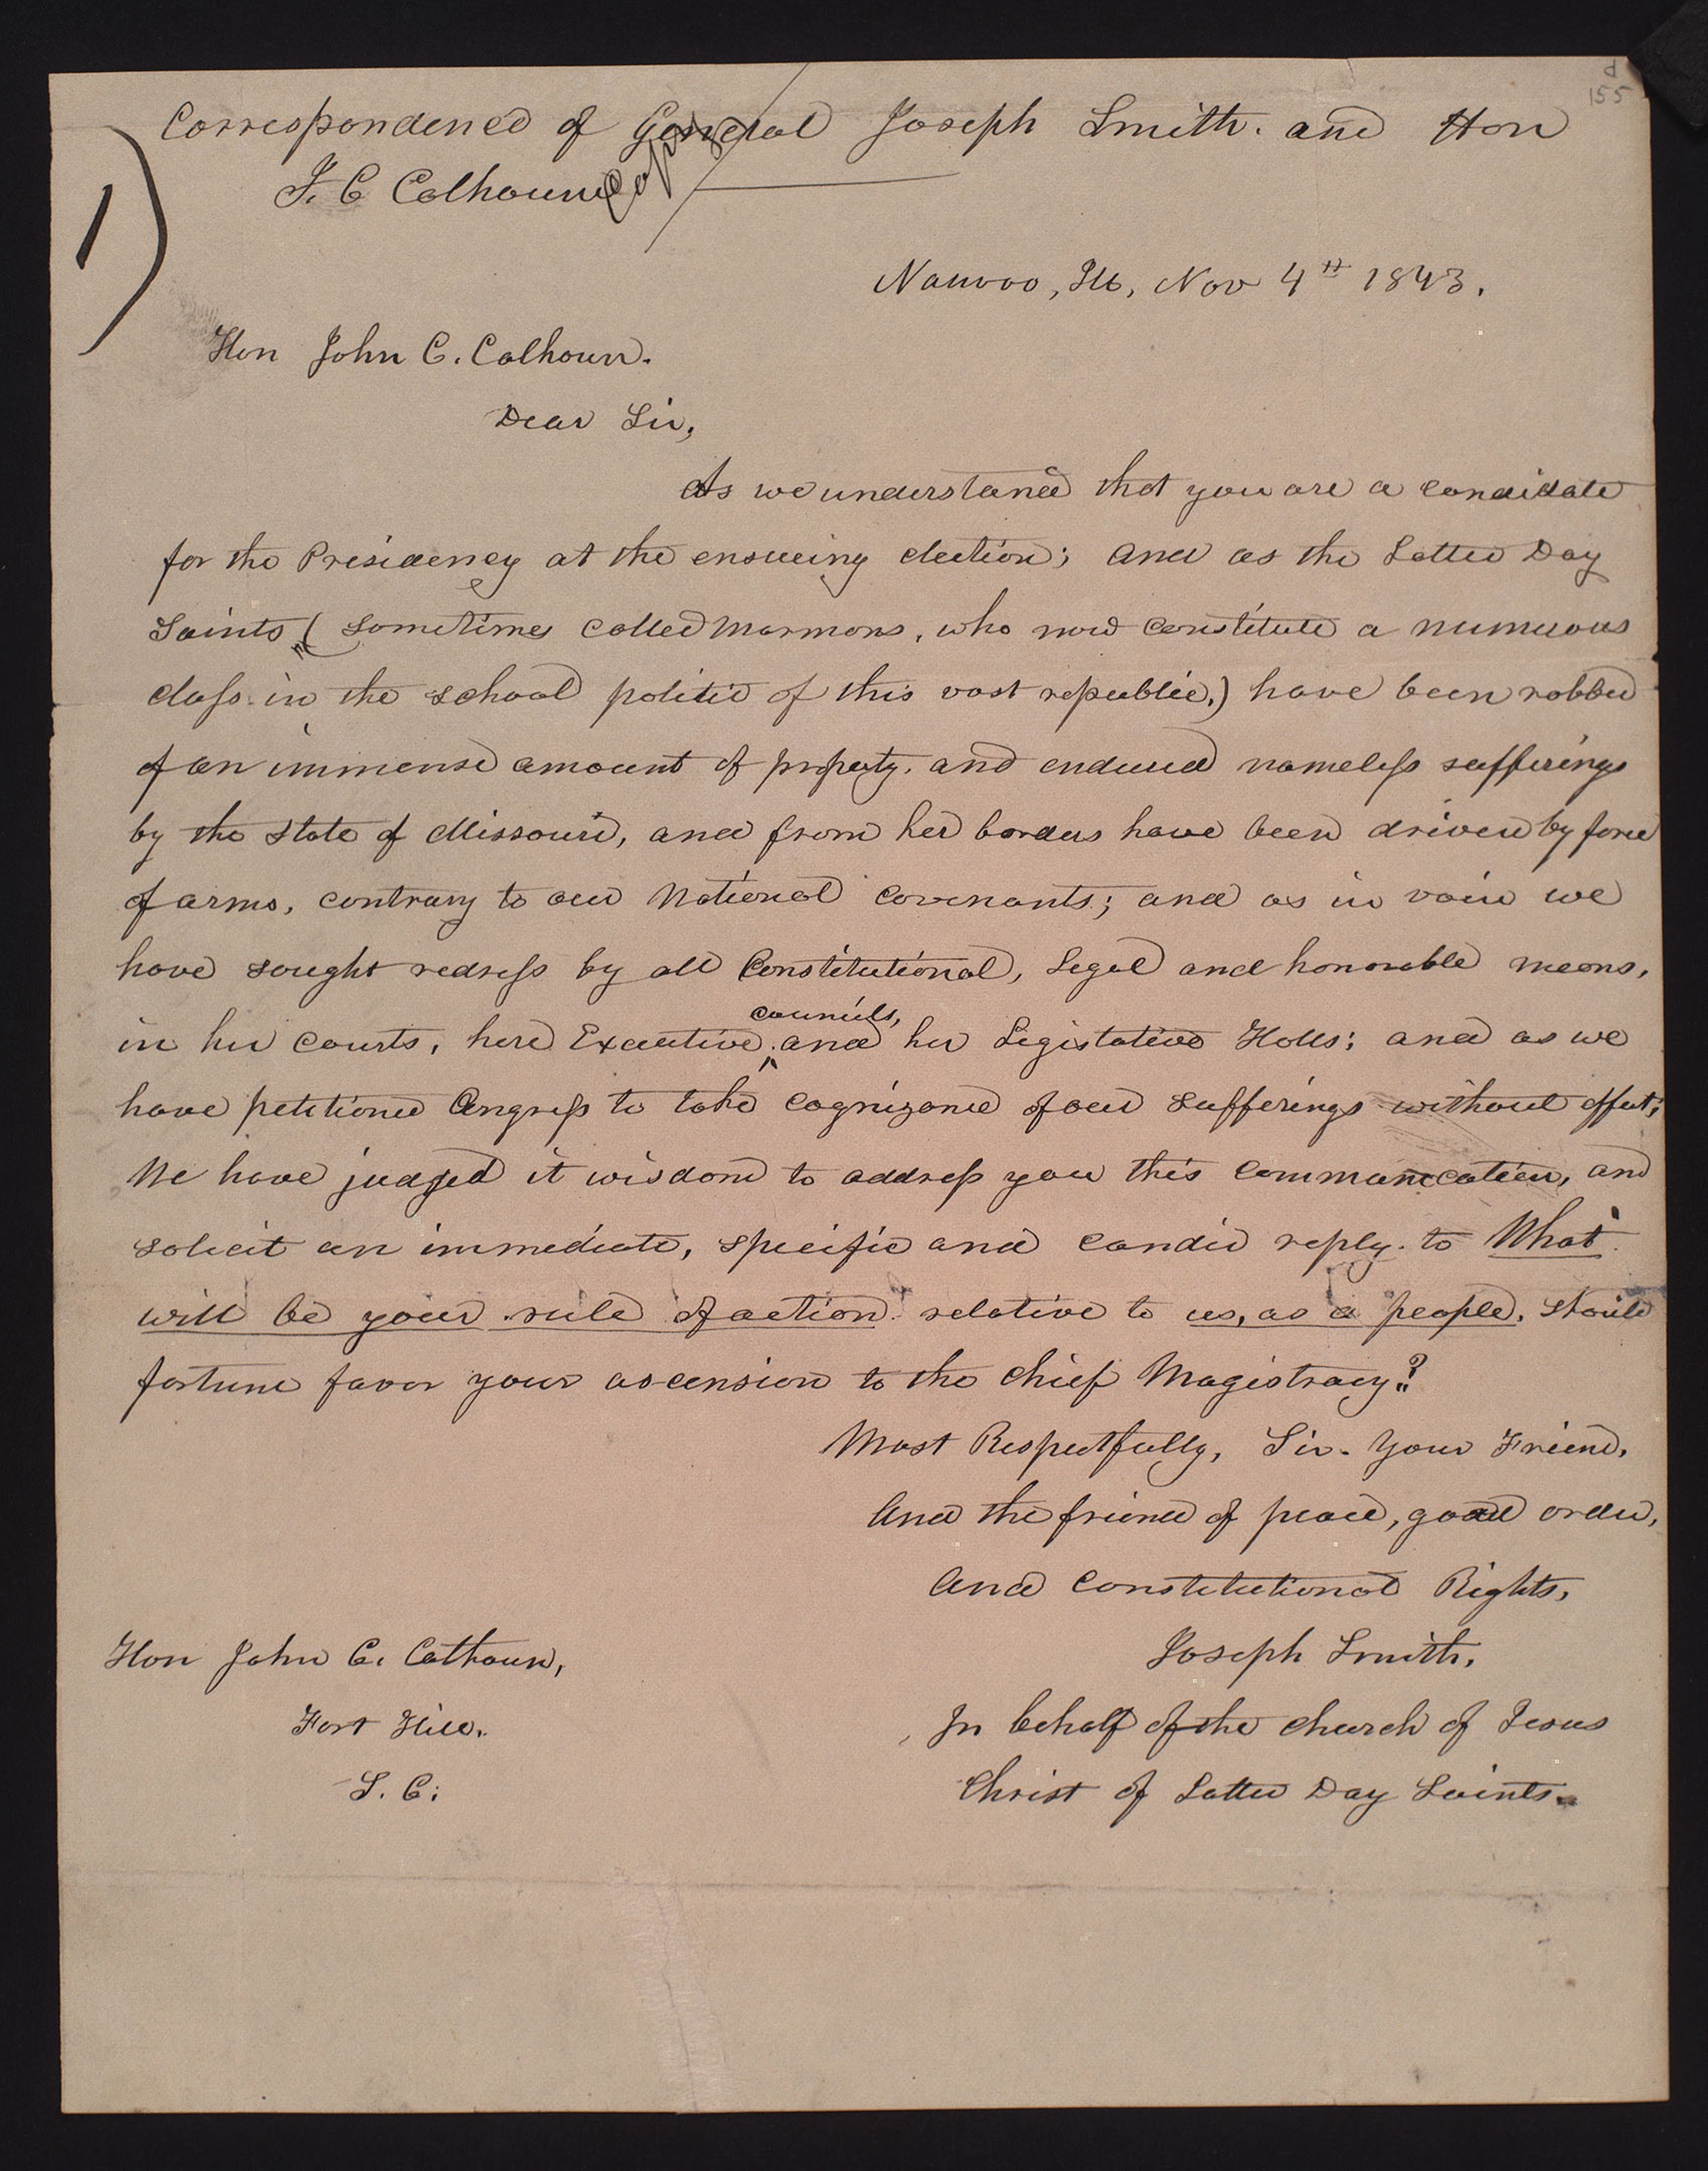 d
155
Correspondence of General Joseph Smith. and Hon
J. C Calhoun
Copy
1)
Nauvoo, Ill, Nov 4th 1843.
Hon John C. Calhoun.
Dear Sir,
As we understand that you are a candidate
for the Presidency at the ensueing election; and as the Latter Day
Saints ( sometimes called Mormons, who now constitute a numerous
class in the school politic of this vast republic,) have been robbed
of an immense amount of property, and endured nameless sufferings
by the State of Missouri, and from her borders have been driven by force
of arms, contrary to our National Covenants; and as in vain we
have sought redress by all Constitutional, Legal and honorable means,
councils,
in her Courts, here Executive ^ and her Legistative Halls; and as we
have petitioned Congress to take cognizance of our sufferings without effect;
We have judged it wisdom to address you this communication, and
solicit an immediate, specific and candid reply. to What
will be your rule of action. relative to us, as a people, should
fortune favor your ascension to the Chief Magistracy?
Most Respectfully, Sir. Your Friend,
And the friend of peace, good order,
And Constitutional Rights,
Joseph Smith,
Hon John C. Calhoun,
Fort Hill.
S. C.
In behalf of the Church of Jesus
Christ of Latter Day Saints.